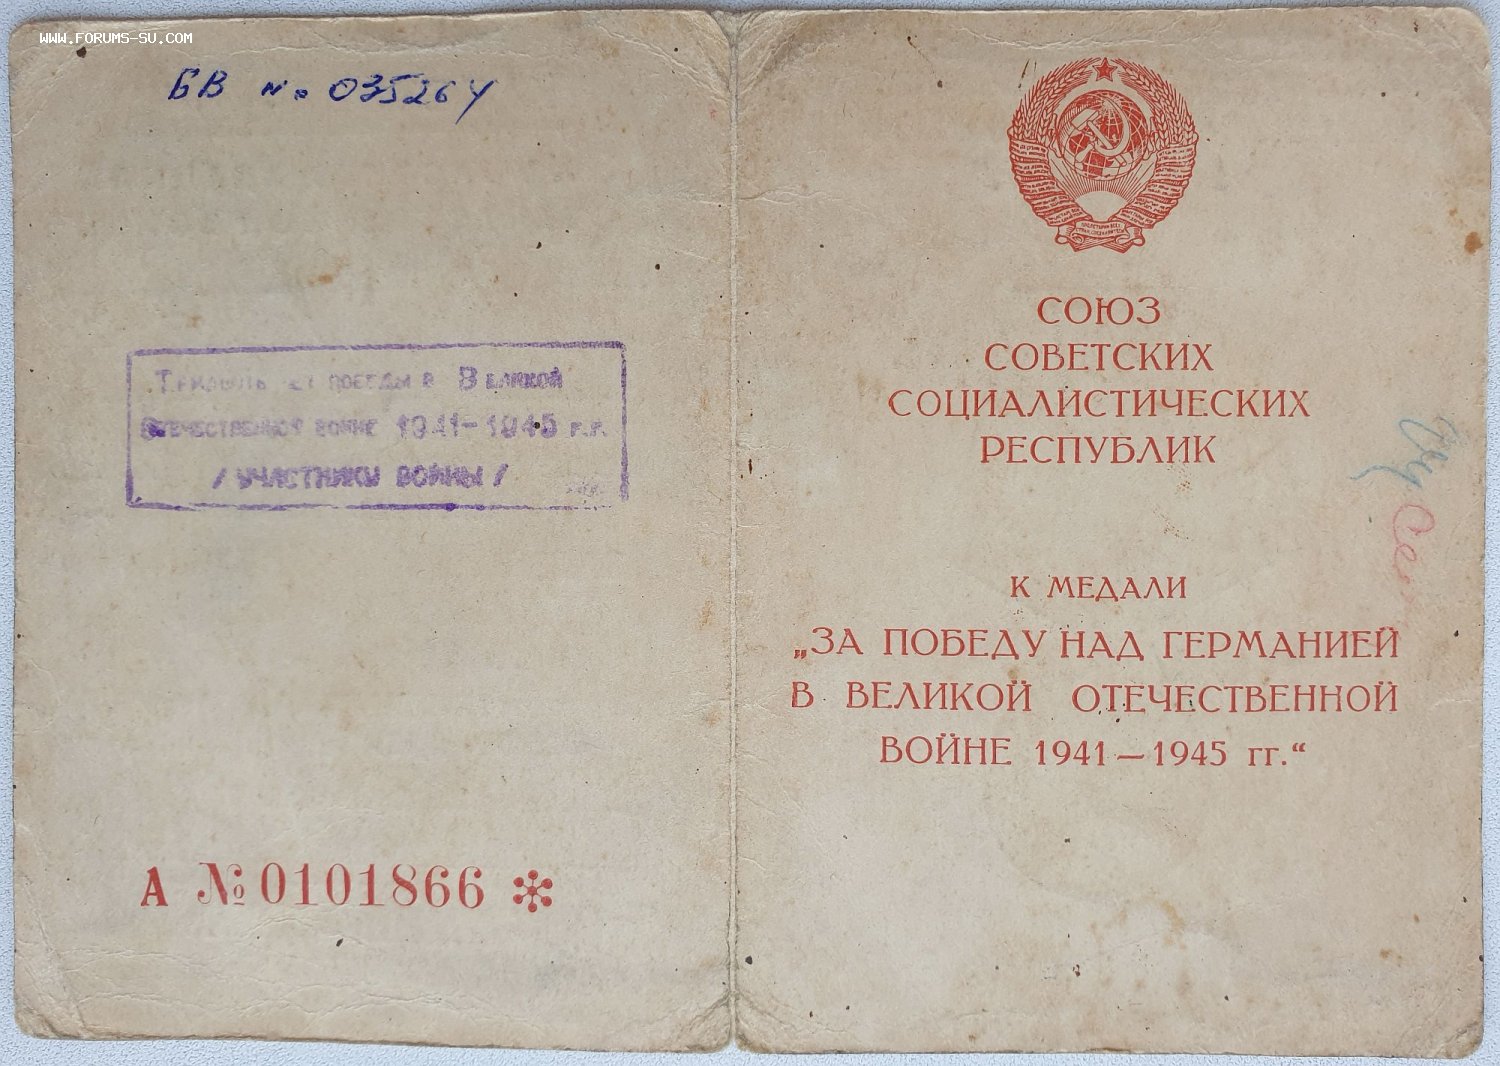 www.forums-su.com
БВ № 035264
Тридцать лет победы в Великой
Отечественной войне 1941-1945 г.г.
/ УЧАСТНИКУ ВОЙНЫ /
А № 0101866
ПРОЛЕТАРИИ ВСЕХ
СТРАН, СОЕДИНЯЙТЕСЬ
СОЮЗ
СОВЕТСКИХ
СОЦИАЛИСТИЧЕСКИХ
РЕСПУБЛИК
К МЕДАЛИ
„ЗА ПОБЕДУ НАД ГЕРМАНИЕЙ
В ВЕЛИКОЙ ОТЕЧЕСТВЕННОЙ
ВОЙНЕ 1941—1945 гг.“